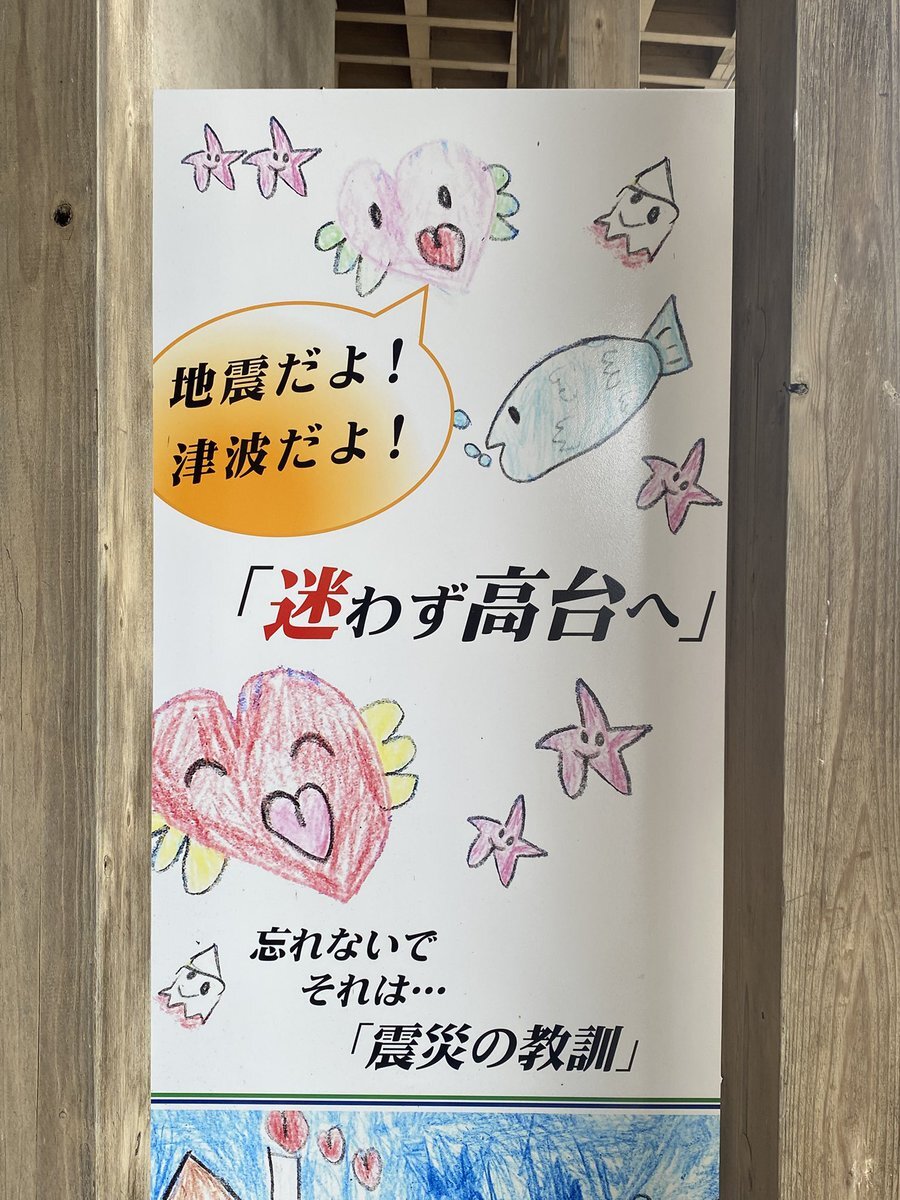 地震だよ！
津波だよ！
「迷わず高台へ」
忘れないで
それは…
「震災の教訓」